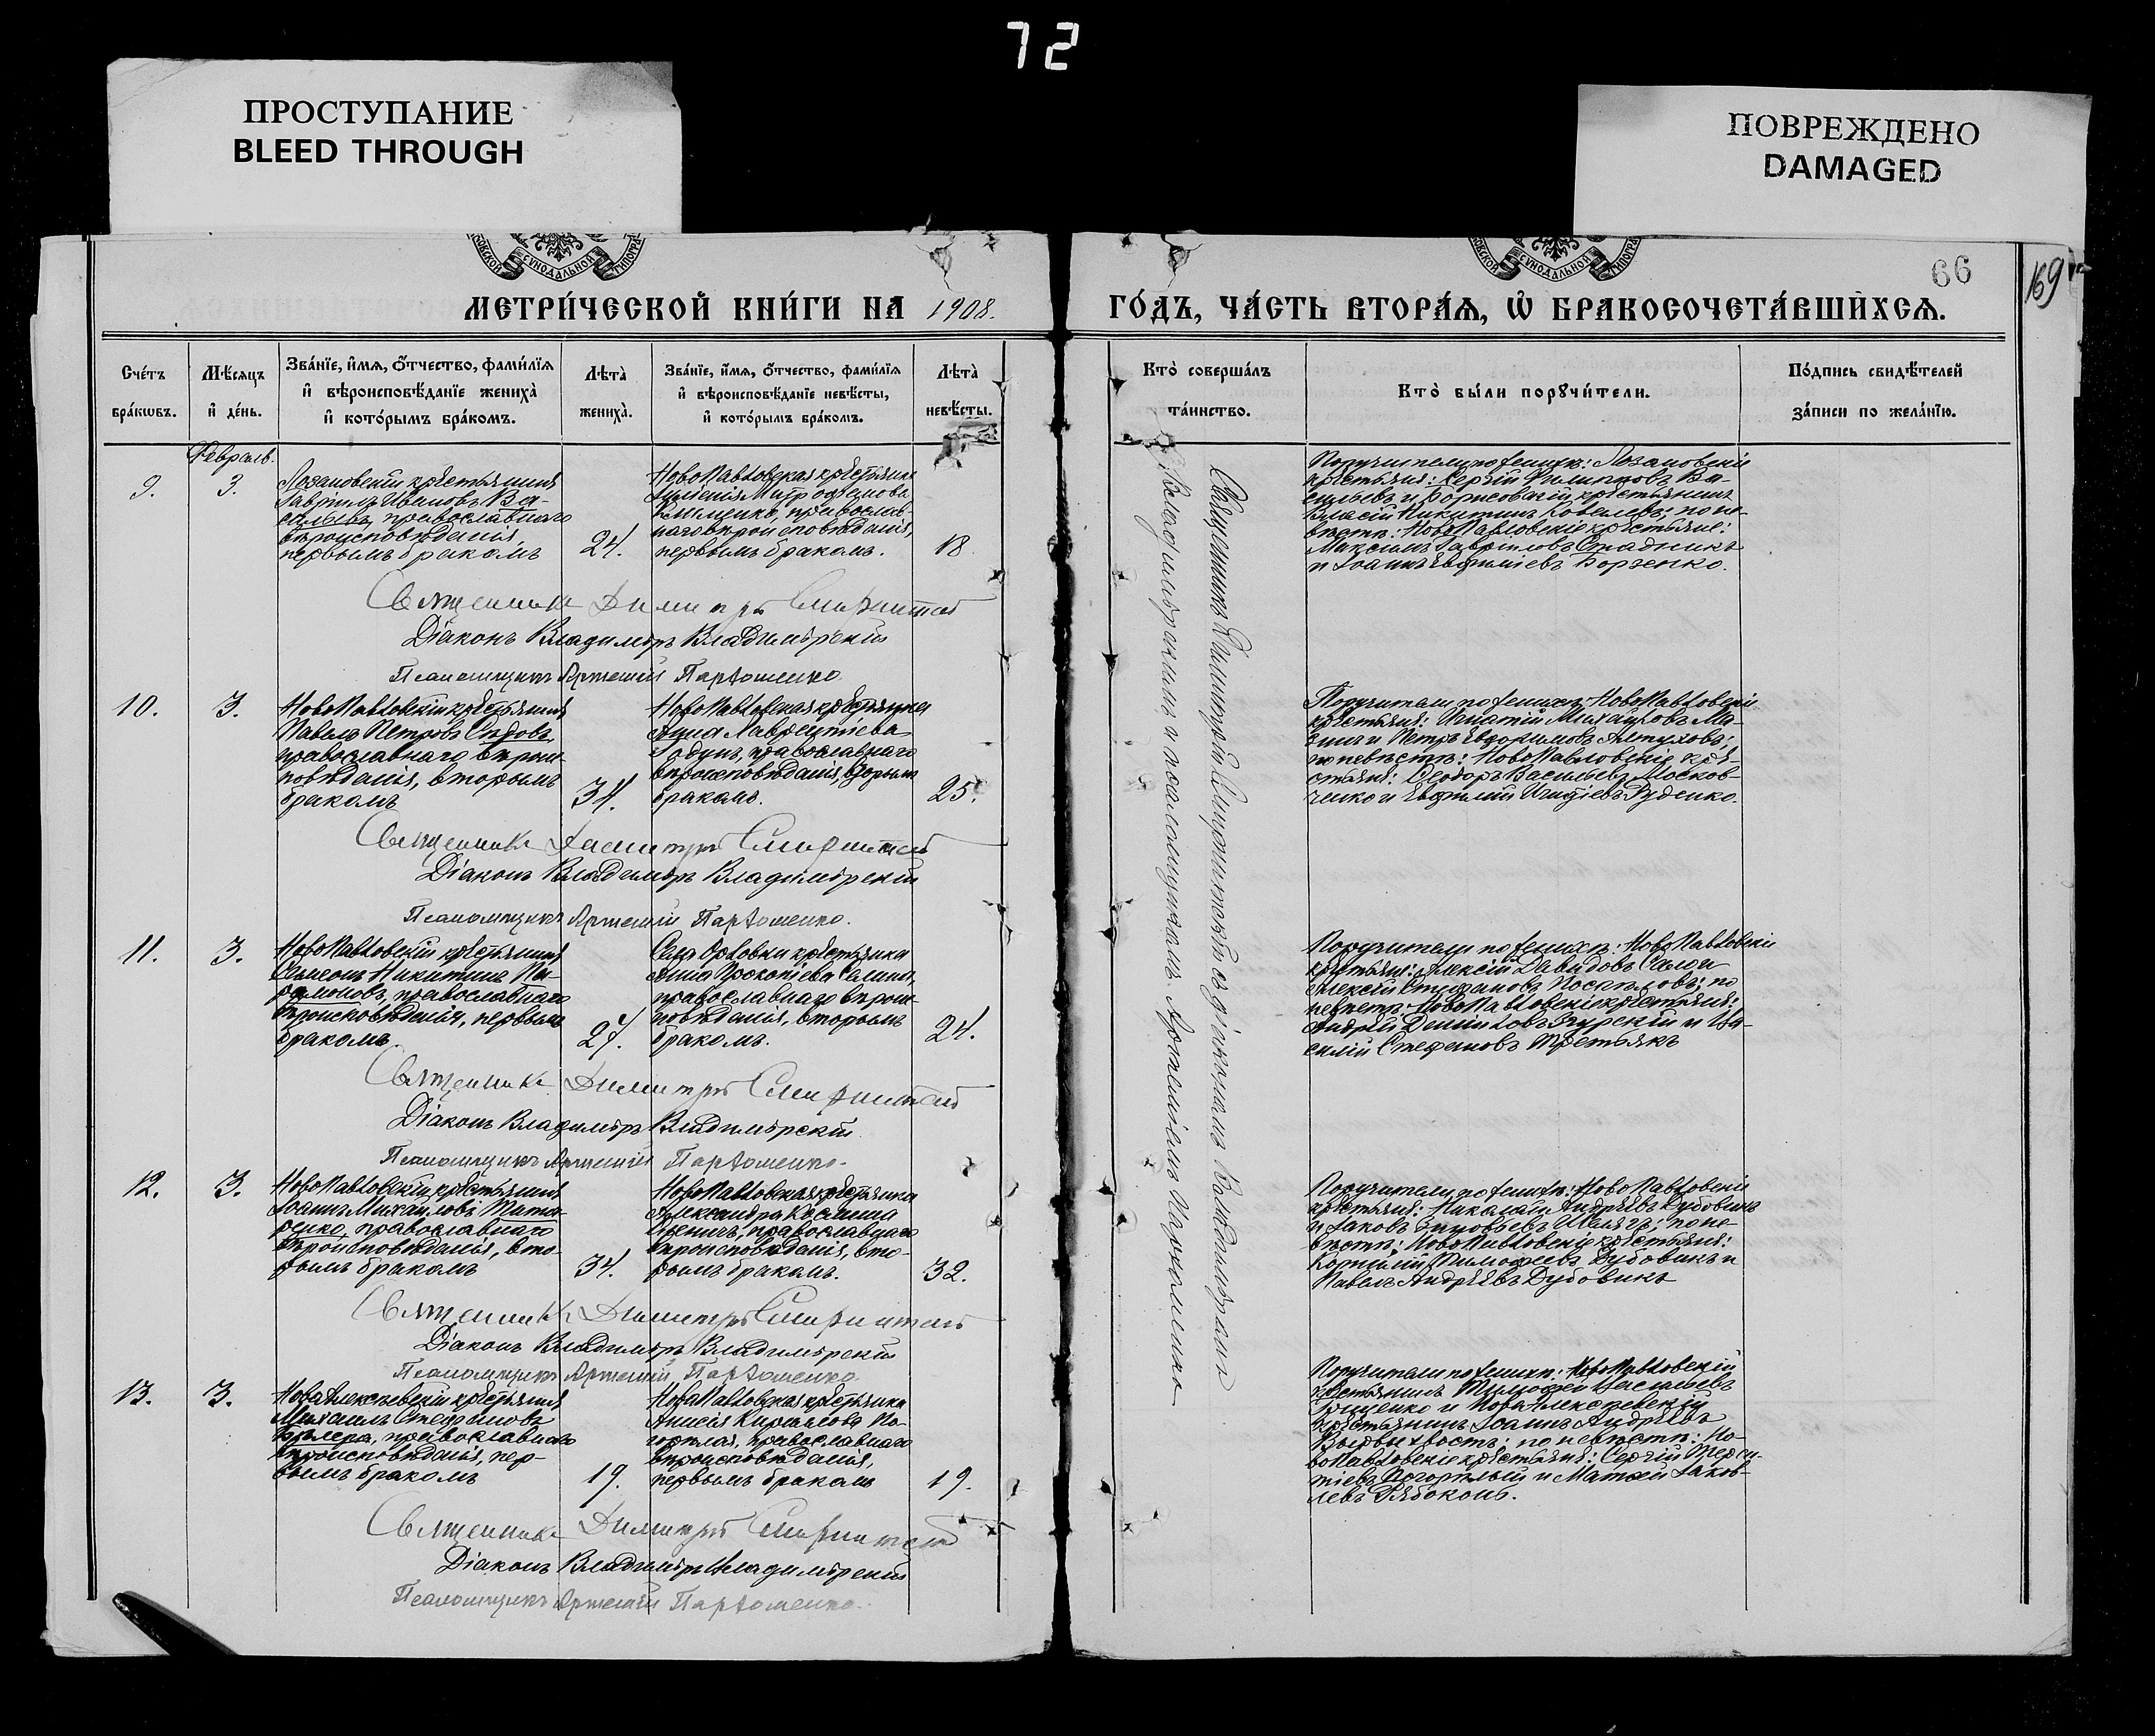 72
ПРОСТУПАНИЕ
BLEED THROUGH
ПОВРЕЖДЕНО
DAMAGED
СѴНОДАЛЬНОЙ
СѴНОДАЛЬНОЙ
66
169
МЕТРИ́ЧЕСКОЙ КНИ́ГИ НА 1908.
ГО́ДЪ, ЧА́СТЬ ВТОРА́Ѧ, Ѽ БРАКОСОЧЕТА́ВШИХСѦ.
Сче́тъ
бра́кѡвъ.
Мѣ́сяцъ
и҆ де́нь.
Зва́нїе, и҆́мя, ѻ҆́тчество, фами́лїя
и҆ вѣроисповѣ́данїе жениха̀
и҆ кото́рымъ бра́комъ.
Лѣта̀
жениха̀.
Зва́нїе, и҆́мя, ѻ҆́тчество, фами́лїя
и҆ вѣроисповѣ́данїе невѣ́сты,
и҆ кото́рымъ бра́комъ.
Лѣта̀
невѣ́сты.
Кто̀ соверша́лъ
та́инство.
Кто̀ бы́ли порꙋчи́тели.
По́дпись свидѣ́телей
за́писи по жела́нїю.
Февраль.
9.
3.
Лозановскій крестьянинъ
Гавріилъ Ивановъ Ва-
сильевъ, православнаго
вѣроисповѣданія,
первымъ бракомъ
24.
НовоПавловская крестьянка
Митрофанова
православ-
наго вѣроисповѣданія,
первымъ бракомъ.
18
Поручители по женихѣ: Лозановскіе
крестьяне: Сергій Филипповъ Ва-
сильевъ и Борисовскій крестьянинъ
Власій Никитинъ Ковалевъ; по не-
вѣстѣ: НовоПавловскіе крестьяне:
Максимъ Гавріиловъ Стадникъ
и Іоаннъ Евфиміевъ Борзенко.
Священникъ Димитрій
Діаконъ Владиміръ Владимірскій
Псаломщикъ Артемій Пархоменко
10.
3.
НовоПавловскій крестьянинъ
Павелъ Петровъ Сѣдовъ,
православнаго вѣроис-
повѣданія, вторымъ
бракомъ
34.
НовоПавловская крестьянка
Анна Лаврентіева
православнаго
вѣроисповѣданія, вторымъ
бракомъ.
25.
Поручители по женихѣ НовоПавловскіе
крестьяне: Игнатій Михайловъ Ма-
и Петръ Евфимовъ
по невѣстѣ: НовоПавловскіе кре-
стьяне: Ѳеодоръ Васильевъ Москов-
ченко и Евфимій Игнатіевъ Руденко.
Священникъ Димитрій
Діаконъ Владиміръ Владимірскій
Псаломщикъ Артемій Пархоменко.
11.
3.
НовоПавловскій крестьянинъ
Симеонъ Никитинъ Па-
рамоновъ, православнаго
вѣроисповѣданія, первымъ
бракомъ.
27.
Села Орловки крестьянка
Анна Прокопіева
православнаго вѣроис-
повѣданія, вторымъ
бракомъ.
24.
Поручители по женихѣ: НовоПавловскіе
крестьяне: Алексій Давидовъ и
Алексій Стефановъ Поспѣловъ; по
невѣстѣ: НовоПавловскіе крестьяне:
Андрей Даниловъ Згурскій и Ва-
силій Стефановъ Третьякъ
Священникъ Димитрій
Діаконъ Владиміръ Владимірскій
Псаломщикъ Артемій Пархоменко.
12.
3.
НовоПавловскій крестьянинъ
Іоаннъ Михаиловъ Тата-
ренко, православнаго
вѣроисповѣданія, вто-
рымъ бракомъ
34.
НовоПавловская крестьянка
Александра Космина
православнаго
вѣроисповѣданія, вто-
рымъ бракомъ.
32.
Поручители по женихѣ: НовоПавловскіе
крестьяне: Николай Андреевъ Дубовикъ
и Іаковъ Зиновьевъ по не-
вѣстѣ: НовоПавловскіе крестьяне:
Корнилій Тимофеевъ Дубовикъ и
Павелъ Андреевъ Дубовикъ
Священникъ Димитрій
Діаконъ Владиміръ Владимірскій
Псаломщикъ Артемій Пархоменко
13.
3.
НовоАлексѣевскій крестьянинъ
Михаилъ Стефановъ
православнаго
вѣроисповѣданія, пер-
вымъ бракомъ
19.
НовоПавловская крестьянка
Анисія Кирилова По-
горѣлая, православнаго
вѣроисповѣданія,
первымъ бракомъ
19.
Поручители по женихѣ: НовоПавловскій
крестьянинъ Тимофей Васильевъ
Грищенко и НовоАлексѣевскій
крестьянинъ Іоаннъ Андреевъ
по невѣстѣ: Но-
воПавловскіе крестьяне: Сергій Терен-
тіевъ Погорѣлый и Матѳей Іаков-
левъ Рябоконь.
Священникъ Димитрій
Діаконъ Владиміръ Владимірскій
Псаломщикъ Артемій Пархоменко.
Священникъ Димитрій съ діакономъ Владиміромъ
Владимірскимъ и псаломщикомъ Артеміемъ Пархоменко